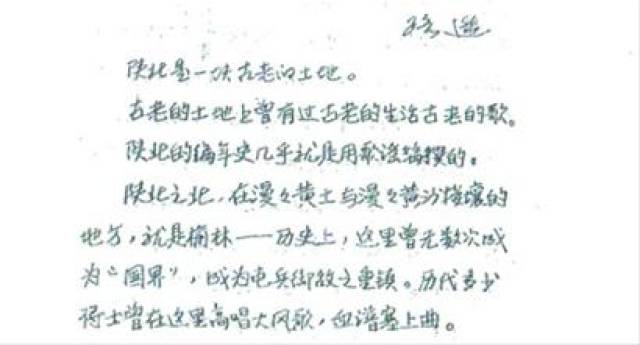 路遥
陕北是一块古老的土地。
古老的土地上曾有过古老的生活古老的歌。
陕北的编年史几乎就是用歌谣编撰的。
陕北之北,在漫々黄土与漫々黄沙接壤的
地方,就是榆林——历史上,这里曾无数次成
为“国界”,成为屯兵御敌之重镇。历代多少
将士曾在这里高唱大风歌,血谱塞上曲。